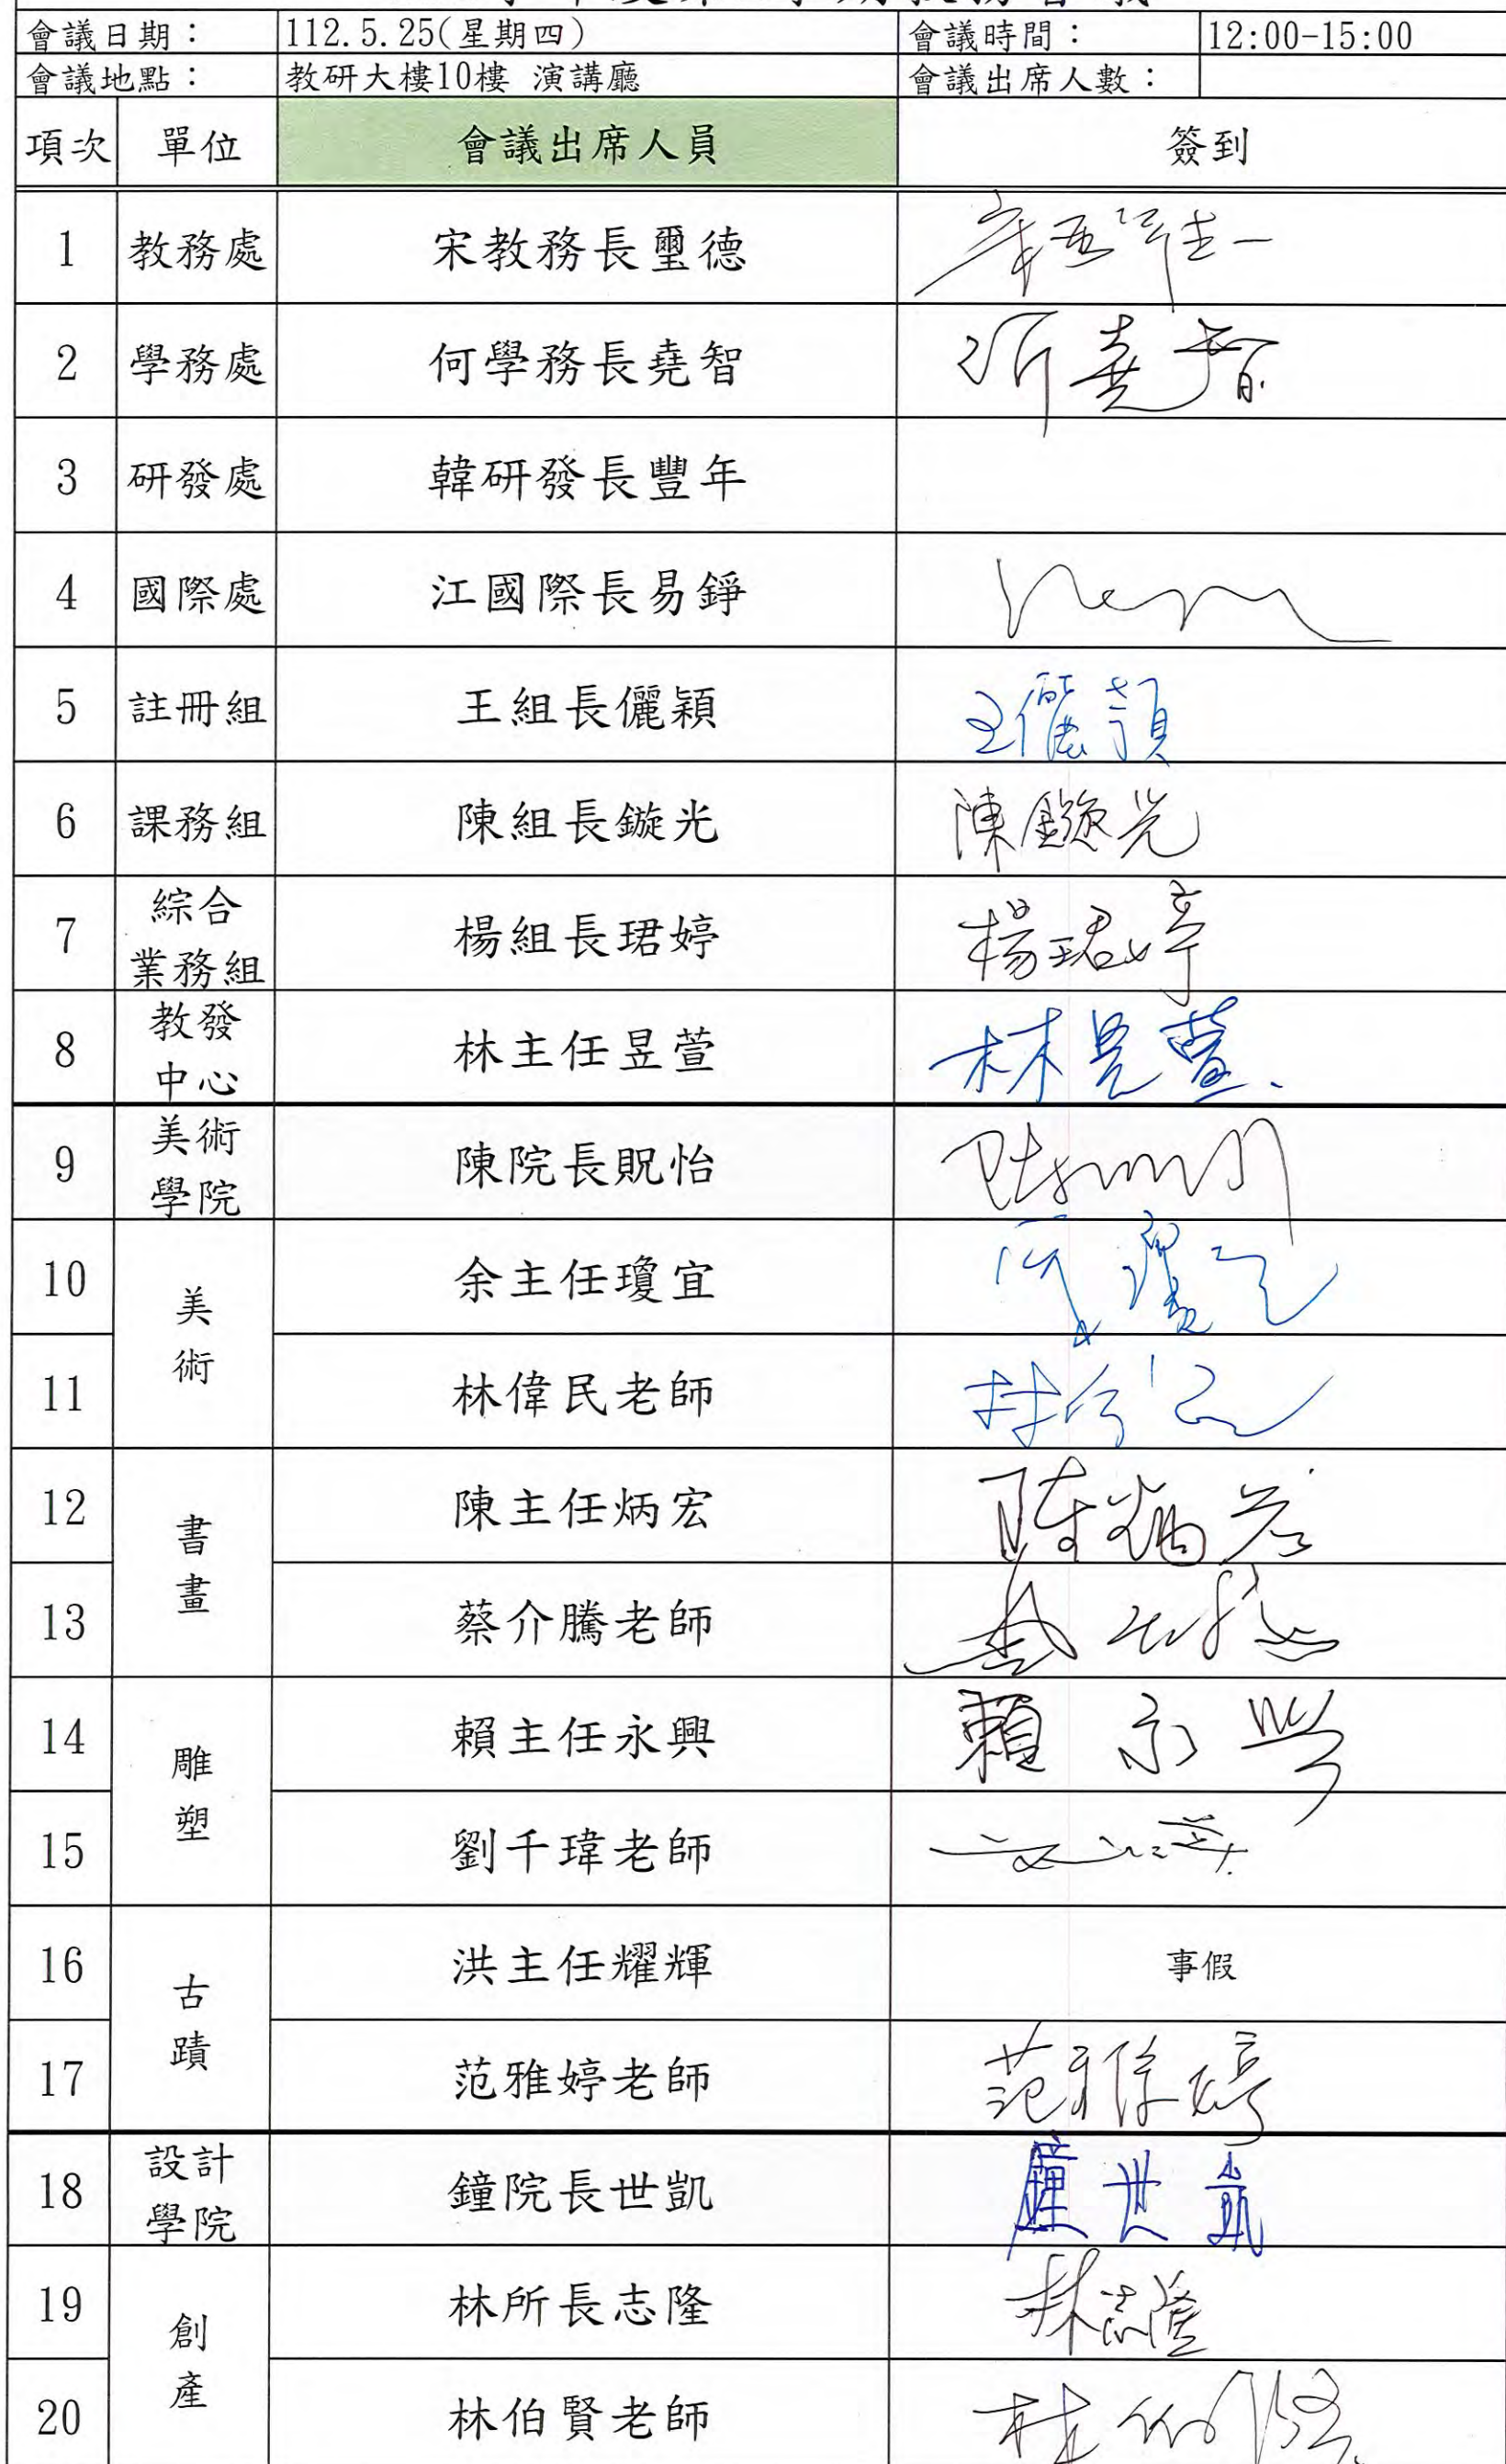 會議日期： 112.5.25(星期四) 會議時間： 12:00-15:00
會議地點： 教研大樓10樓 演講廳 會議出席人數：
項次 單位 會議出席人員 簽到
1 教務處 宋教務長璽德
2 學務處 何學務長堯智 何堯智
3 研發處 韓研發長豐年
4 國際處 江國際長易錚
5 註冊組 王組長儷穎 王儷穎
6 課務組 陳組長鏇光 陳鏇光
7 綜合業務組 楊組長珺婷 楊珺婷
8 教發中心 林主任昱萱 林昱萱
9 美術學院 陳院長貺怡
10 美術 余主任瓊宜
11 林偉民老師
12 書畫 陳主任炳宏 陳炳宏
13 蔡介騰老師
14 雕塑 賴主任永興 賴永興
15 劉千瑋老師
16 古蹟 洪主任耀輝 事假
17 范雅婷老師 范雅婷
18 設計學院 鐘院長世凱 鐘世凱
19 創產 林所長志隆 林志隆
20 林伯賢老師 林伯賢